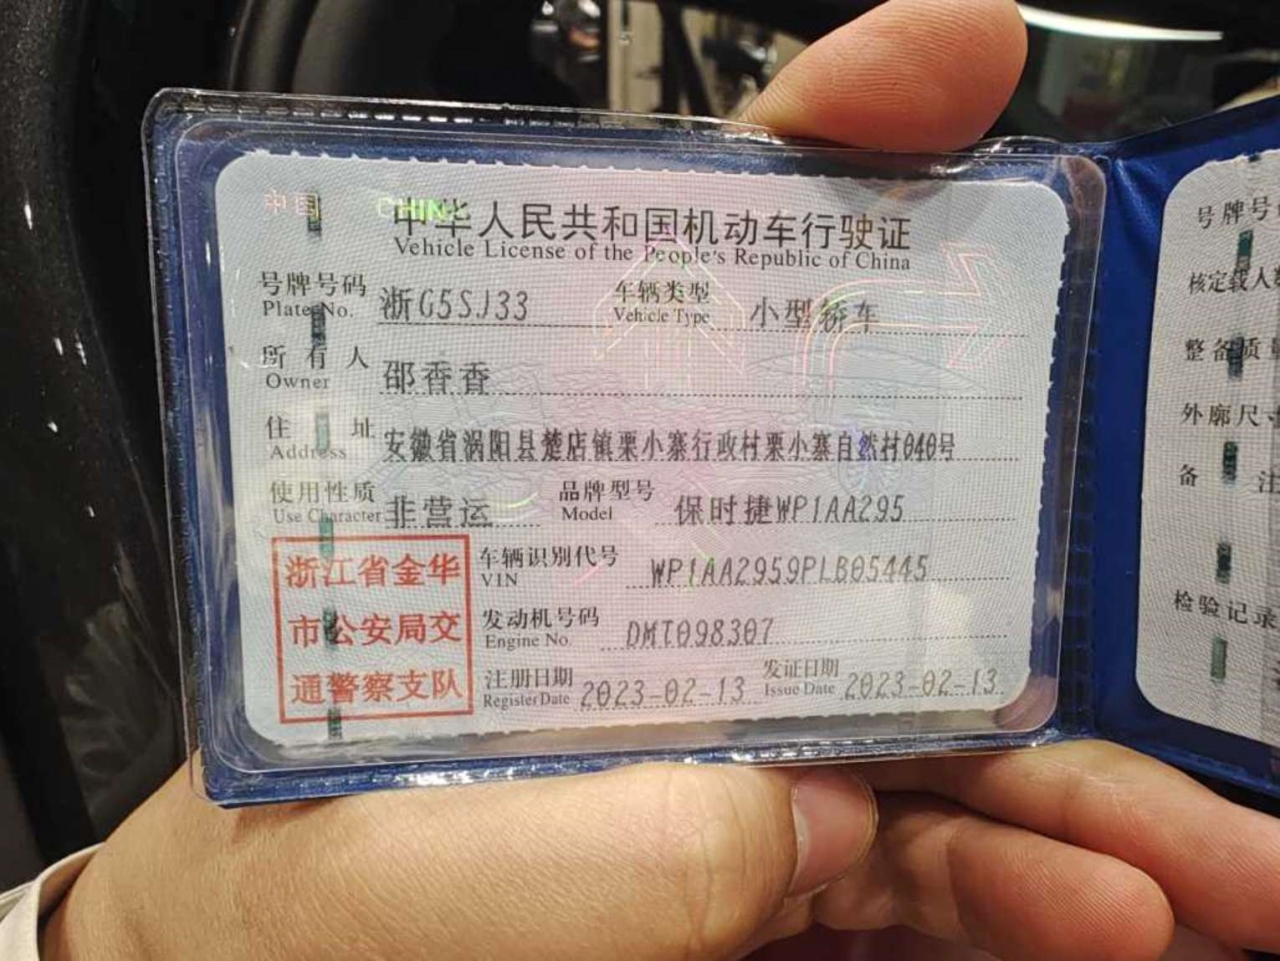 中国 CHINA
中华人民共和国机动车行驶证
Vehicle License of the People's Republic of China
号牌号码 浙G5SJ33 车辆类型 小型轿车
Plate No. Vehicle Type
所有人 邵香香
Owner
住址 安徽省涡阳县楚店镇栗小寨行政村栗小寨自然村040号
Address
使用性质 非营运 品牌型号 保时捷WP1AA295
Use Character Model
浙江省金华
市公安局交
通警察支队
车辆识别代号 WP1AA2959PLB05445
VIN
发动机号码 DMT098307
Engine No.
注册日期 2023-02-13 发证日期 2023-02-13
Register Date Issue Date
号牌号
核定载人
整备质
外廓尺
备 注
检验记录